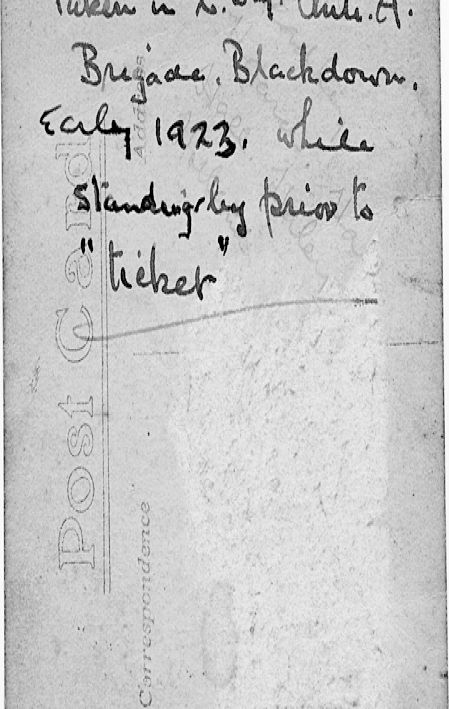 Taken in
Brigade. Blackdown.
Early 1923. while
standing-by prior to
"ticket"
Post Card
Address
Correspondence